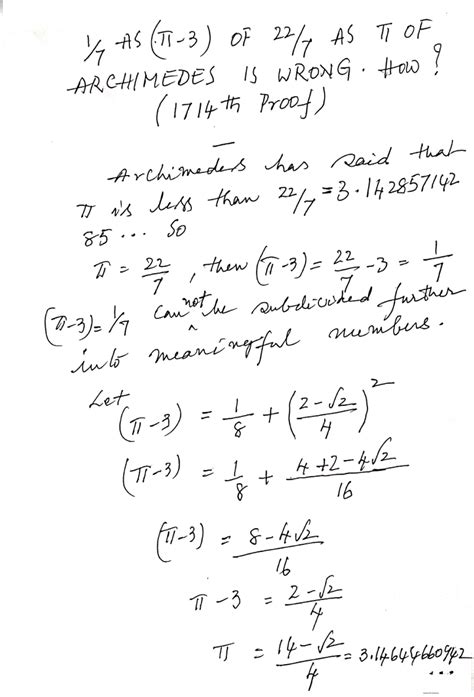 1/7 AS (π-3) OF 22/7 AS π OF
ARCHIMEDES IS WRONG. HOW?
(1714th Proof)
Archimeders has said that
π is less than 22/7 = 3.142857142
85... So
π = 22/7, then (π-3) = 22/7 - 3 = 1/7
(π-3) = 1/7 can not be subdivided further
into meaningful numbers.
Let
(π-3) = 1/8 + ((2-√2)/4)²
(π-3) = 1/8 + (4+2-4√2)/16
(π-3) = (8-4√2)/16
π-3 = (2-√2)/4
π = (14-√2)/4 = 3.14644660942
...